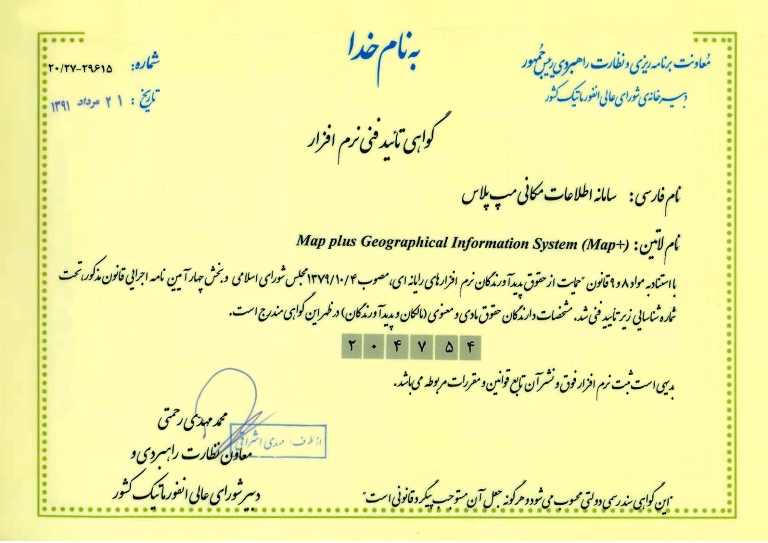 به نام خدا
معاونت برنامه ریزی و نظارت راهبردی رییس جمهور
دبیرخانه‌ی شورای عالی انفورماتیک کشور
شماره: ۲۰/۲۷-۲۹۶۱۵
تاریخ: ۲۱ مرداد ۱۳۹۱
گواهی تائید فنی نرم افزار
نام فارسی: سامانه اطلاعات مکانی مپ پلاس
نام لاتین: Map plus Geographical Information System (Map+)
با استناد به مواد ۸ و ۹ قانون "حمایت از حقوق پدیدآورندگان نرم افزارهای رایانه ای، مصوب ۱۳۷۹/۱۰/۴ مجلس شورای اسلامی و بخش چهار آیین نامه اجرایی قانون مذکور، تحت
شماره شناسایی زیر تایید فنی شد. مشخصات دارندگان حقوق مادی و معنوی (مالکان و پدیدآورندگان) در ظهر این گواهی مندرج است.
۲۰۴۷۵۴
بدیهی است ثبت نرم افزار فوق و نشر آن تابع قوانین و مقررات مربوطه می باشد.
محمد مهدی رحمتی
از طرف: مهدی اشراقی
معاون نظارت راهبردی و
دبیر شورای عالی انفورماتیک کشور
"این گواهی سند رسمی دولتی محسوب می شود و هرگونه جعل آن مستوجب پیگرد قانونی است"